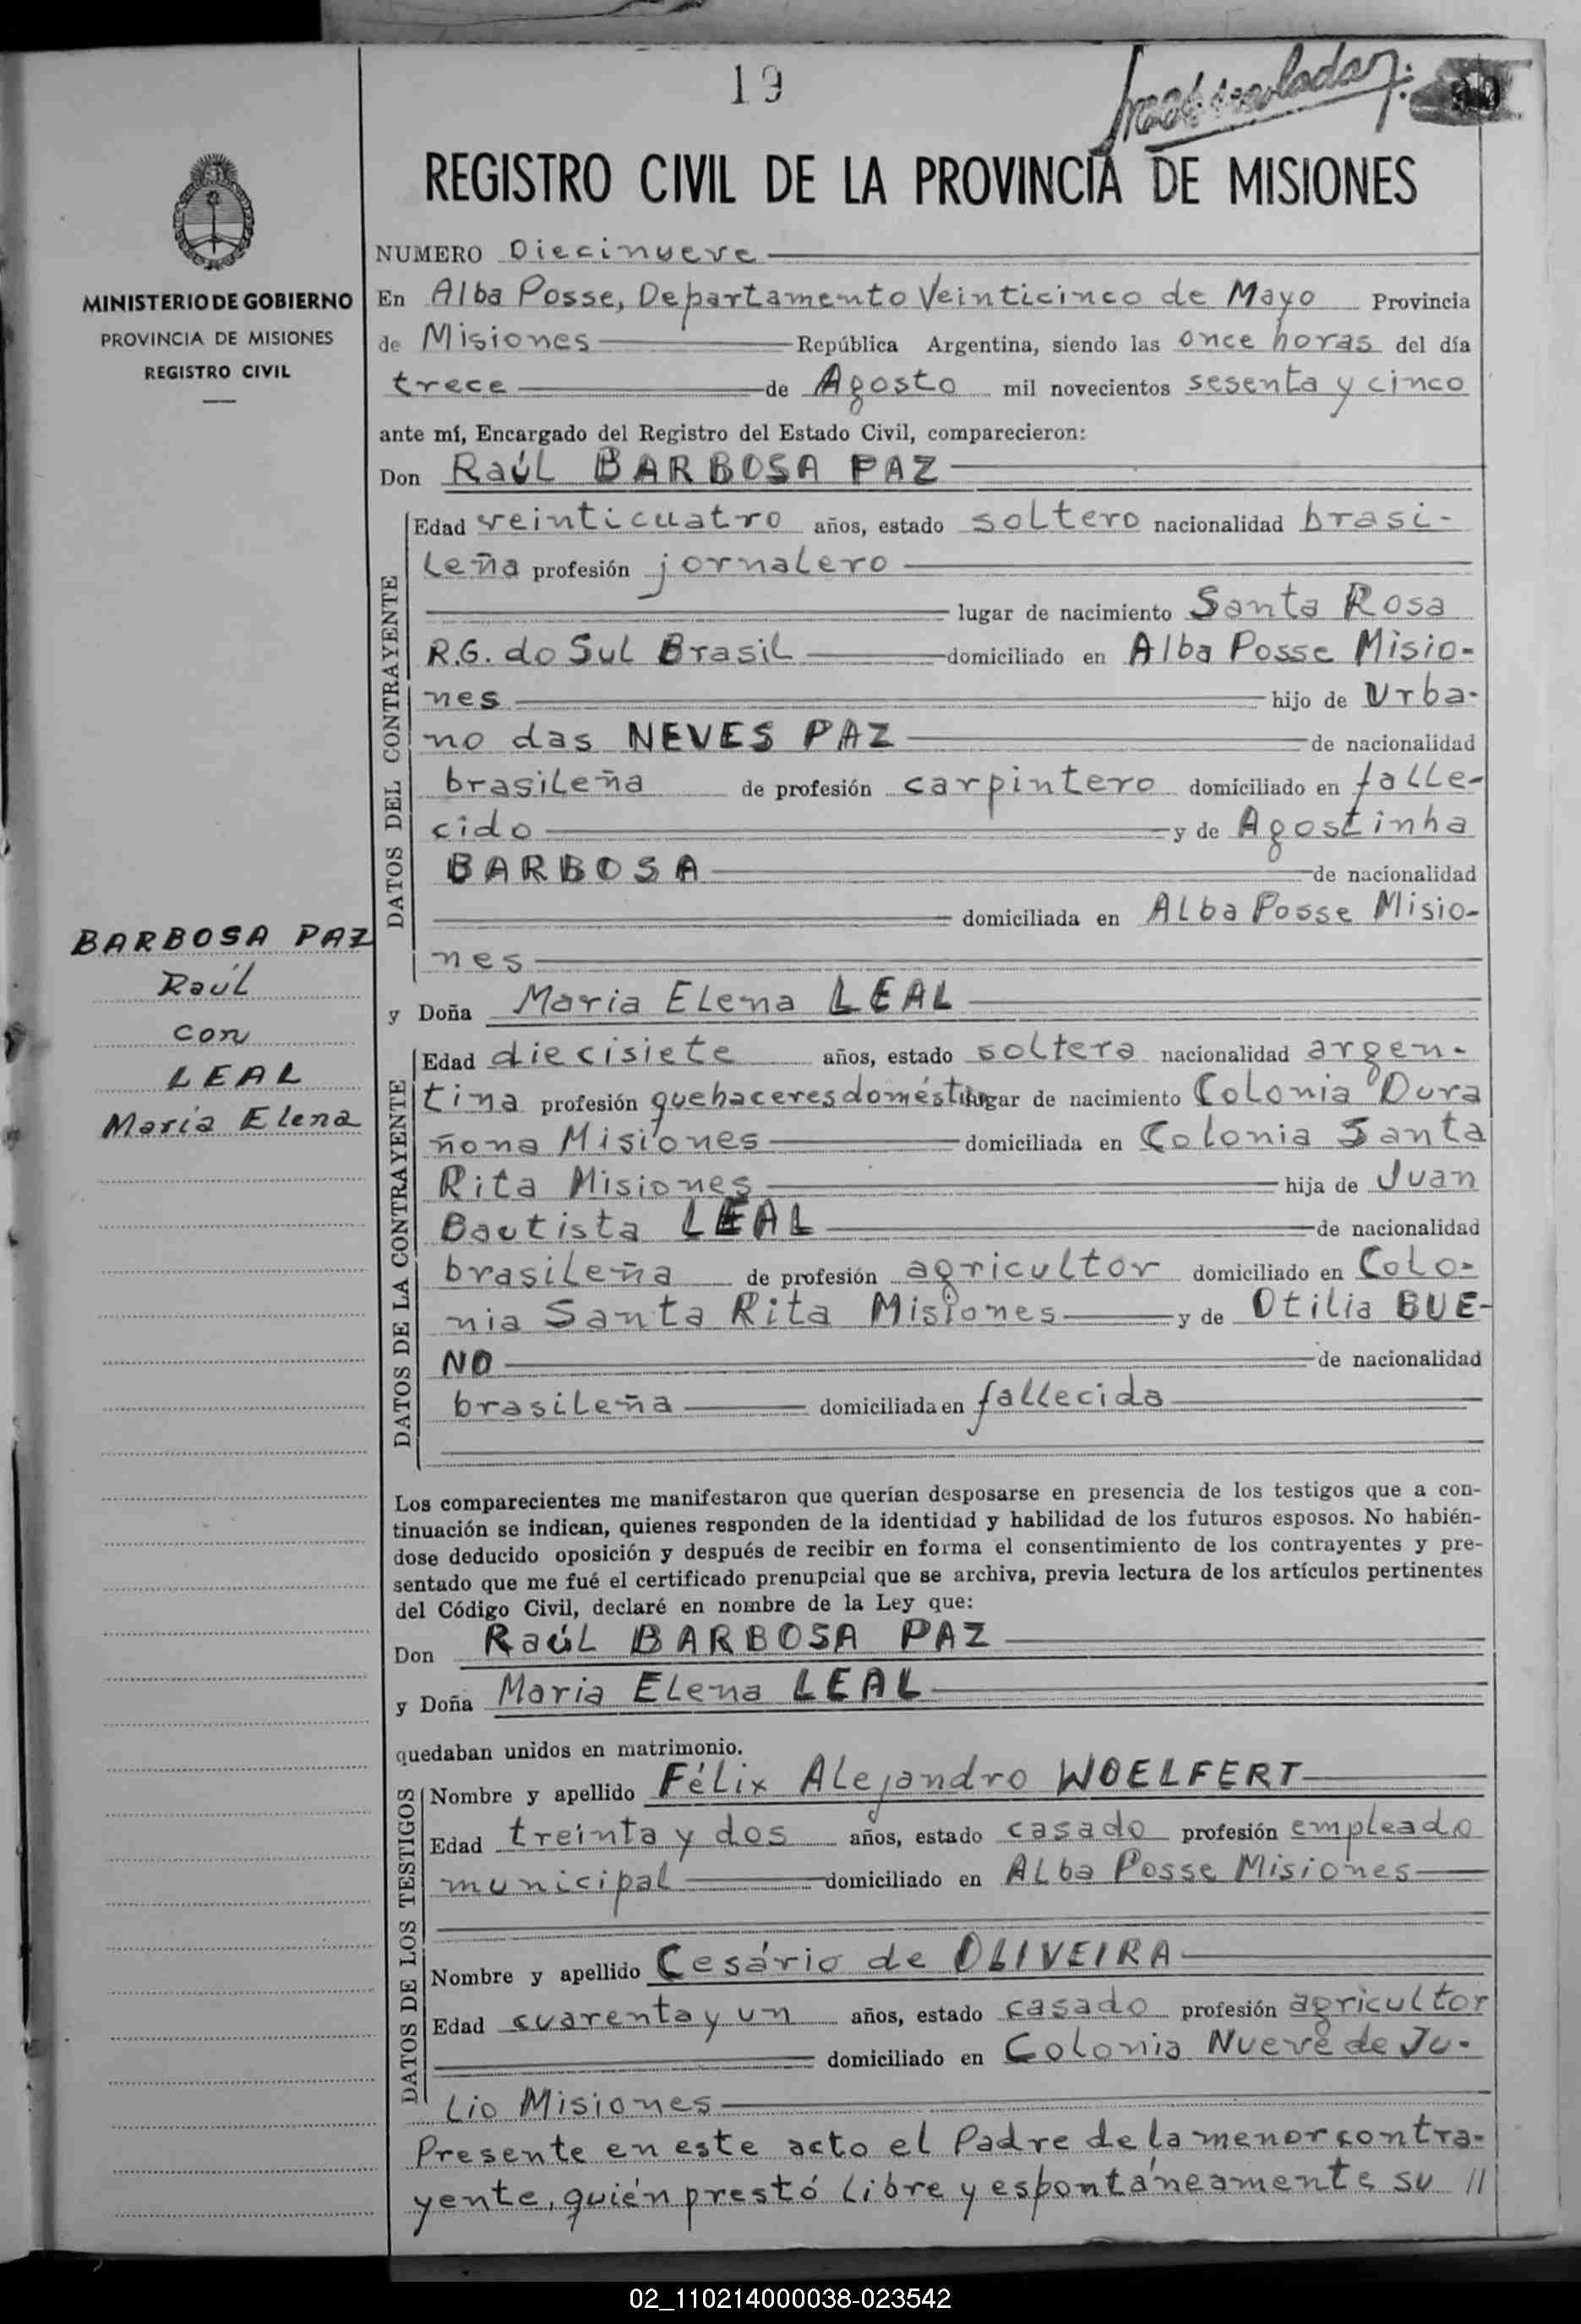 19
REGISTRO CIVIL DE LA PROVINCIA DE MISIONES
MINISTERIO DE GOBIERNO
PROVINCIA DE MISIONES
REGISTRO CIVIL
BARBOSA PAZ
Raúl
con
LEAL
Maria Elena
NUMERO Diecinueve
En Alba Posse, Departamento Veinticinco de Mayo Provincia
de Misiones República Argentina, siendo las once horas del día
trece de Agosto mil novecientos sesenta y cinco
ante mí, Encargado del Registro del Estado Civil, comparecieron:
Don Raúl BARBOSA PAZ
DATOS DEL CONTRAYENTE
Edad veinticuatro años, estado soltero nacionalidad brasi-
leña profesión jornalero
lugar de nacimiento Santa Rosa
R.G. do Sul Brasil domiciliado en Alba Posse Misio-
nes hijo de Urba-
no das NEVES PAZ de nacionalidad
brasileña de profesión carpintero domiciliado en falle-
cido y de Agostinha
BARBOSA de nacionalidad
domiciliada en Alba Posse Misio-
nes
y Doña Maria Elena LEAL
DATOS DE LA CONTRAYENTE
Edad diecisiete años, estado soltera nacionalidad argen-
tina profesión quehaceres domésti lugar de nacimiento Colonia Dura
ñona Misiones domiciliada en Colonia Santa
Rita Misiones hija de Juan
Bautista LEAL de nacionalidad
brasileña de profesión agricultor domiciliado en Colo-
nia Santa Rita Misiones y de Otilia BUE-
NO de nacionalidad
brasileña domiciliada en fallecida
Los comparecientes me manifestaron que querían desposarse en presencia de los testigos que a con-
tinuación se indican, quienes responden de la identidad y habilidad de los futuros esposos. No habién-
dose deducido oposición y después de recibir en forma el consentimiento de los contrayentes y pre-
sentado que me fué el certificado prenupcial que se archiva, previa lectura de los artículos pertinentes
del Código Civil, declaré en nombre de la Ley que:
Don Raúl BARBOSA PAZ
y Doña Maria Elena LEAL
quedaban unidos en matrimonio.
DATOS DE LOS TESTIGOS
Nombre y apellido Félix Alejandro WOELFERT
Edad treinta y dos años, estado casado profesión empleado
municipal domiciliado en Alba Posse Misiones
Nombre y apellido Cesário de OLIVEIRA
Edad cuarenta y un años, estado casado profesión agricultor
domiciliado en Colonia Nueve de Ju-
lio Misiones
Presente en este acto el Padre de la menor contra-
yente, quién prestó libre y espontáneamente su //
02_110214000038-023542